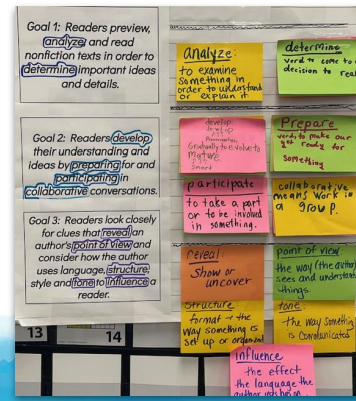 Goal 1: Readers preview,
analyze, and read
nonfiction texts in order to
determine important ideas
and details.
Goal 2: Readers develop
their understanding and
ideas by preparing for and
participating in
collaborative conversations.
Goal 3: Readers look closely
for clues that reveal an
author's point of view and
consider how the author
uses language, structure,
style and tone to influence a
reader.
analyze:
to examine
something in
order to understand
or explain it
determine
verb to come to a
decision to
develop
Gradually to evolve to
Mature
participate
to take a part
or to be involved
in something.
Prepare
verb, to make our
get ready for
something
collaborative
means work in
a group.
reveal:
Show or
uncover
point of view:
the way (the author)
sees and
things.
Structure
format → the
way something is
set up or
tone:
the way something
is communicated
influence
the effect
the language the
author
13
14